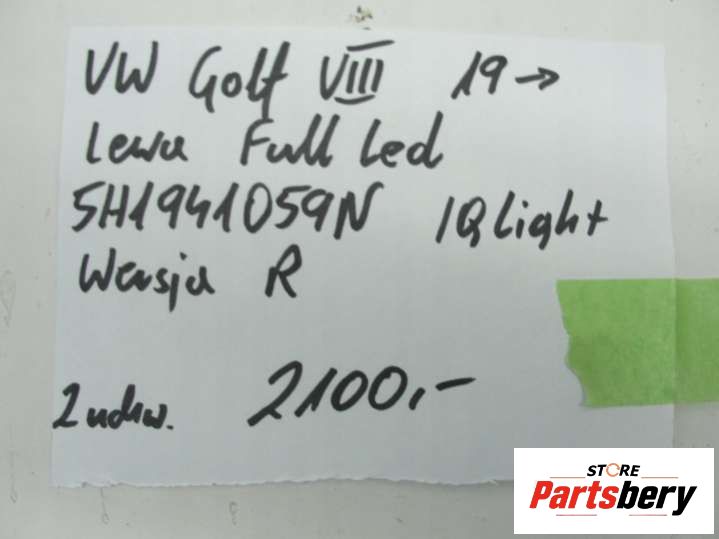 VW Golf VIII 19→
Lewa Full Led
5H1941059N IQ Light
Wersja R
2 uchw. 2100,-
STORE
Partsbery